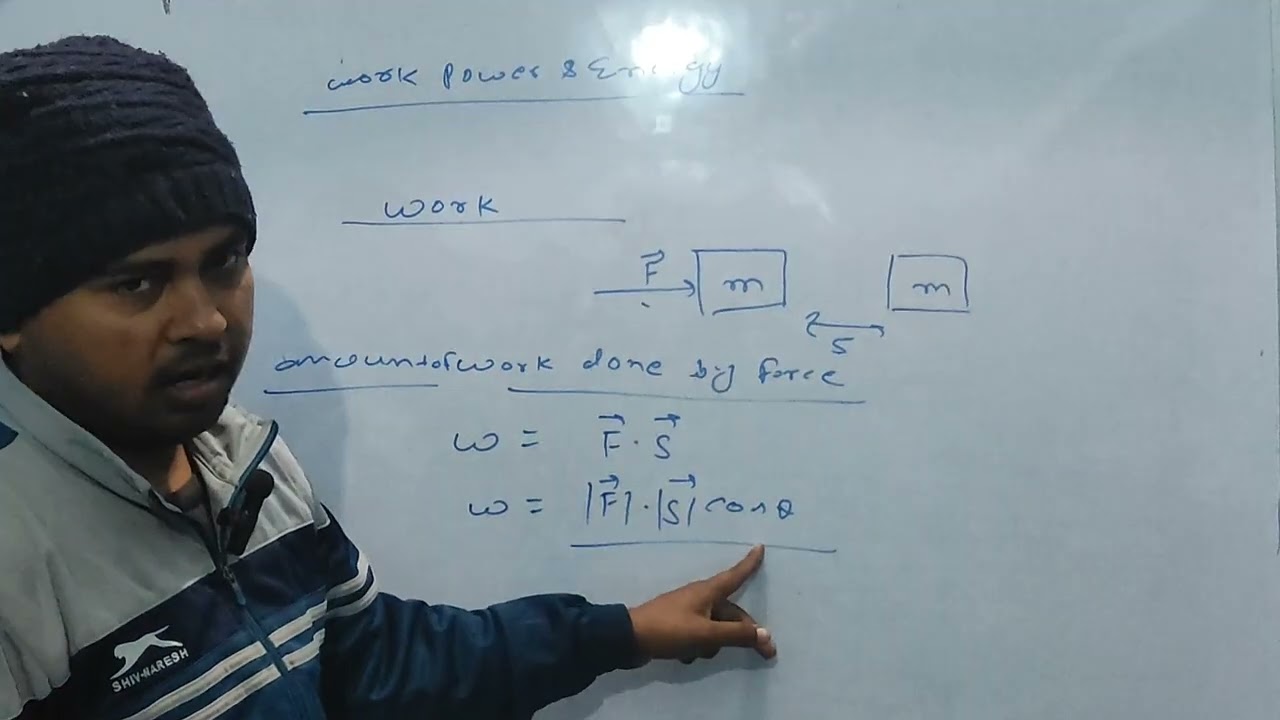 work power & Energy
work
F⃗ m m
S
amount of work done by force
w = F⃗ . S⃗
w = |F⃗| . |S⃗| cos θ
SHIV-NARESH